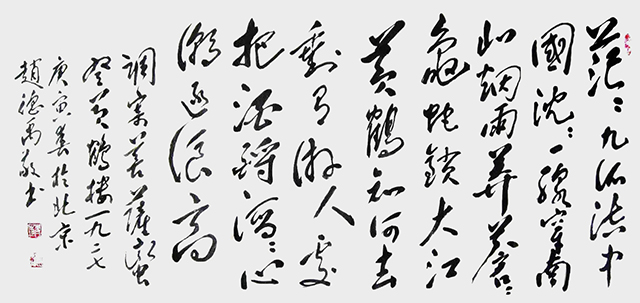 茫〻九派流中
國沈〻一線穿南
北烟雨莽蒼〻
龜蛇鎖大江
黄鶴知何去
剩有游人處
把酒酹滔〻心
潮逐浪高
調寄菩薩蠻
登黄鶴樓一九二七
庚寅春於北京
趙德禹敬書